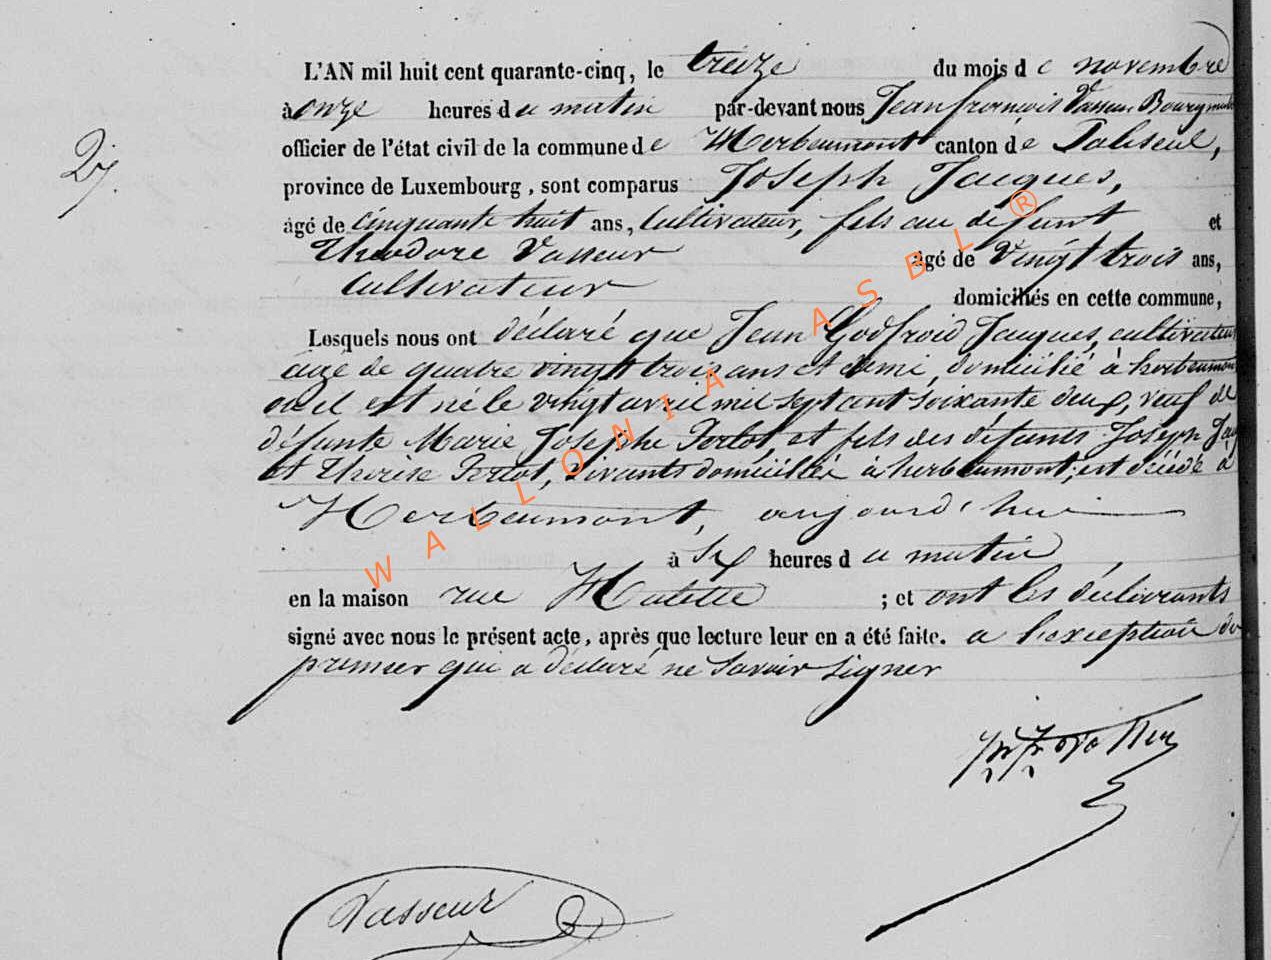 L'AN mil huit cent quarante-cinq, le treize du mois de novembre
à onze heures du matin par-devant nous Jean françois Vasseur Bourgmestre
officier de l'état civil de la commune de Herbeumont canton de Paliseul,
province de Luxembourg, sont comparus Joseph Jacques,
âgé de cinquante huit ans, Cultivateur, fils au défunt et
Théodore Vasseur âgé de Vingt trois ans,
Cultivateur domiciliés en cette commune,
Lesquels nous ont déclaré que Jean Godfroid Jacques, cultivateur
âgé de quatre vingt trois ans et demi, domicilié à herbeumont
où il est né le vingt avril mil sept cent soixante deux, veuf de
défunte Marie Josephe Perlot, et fils des défunts Joseph Jaq
et Therese Perlot, vivants domiciliés à herbeumont, est décédé à
Herbeumont, aujourd'hui
à six heures du matin
en la maison rue Halette ; et ont les déclarants
signé avec nous le présent acte, après que lecture leur en a été faite. a l'exception du
premier qui a déclaré ne savoir signer
Vasseur
27.
WALLONIA ASBL ®